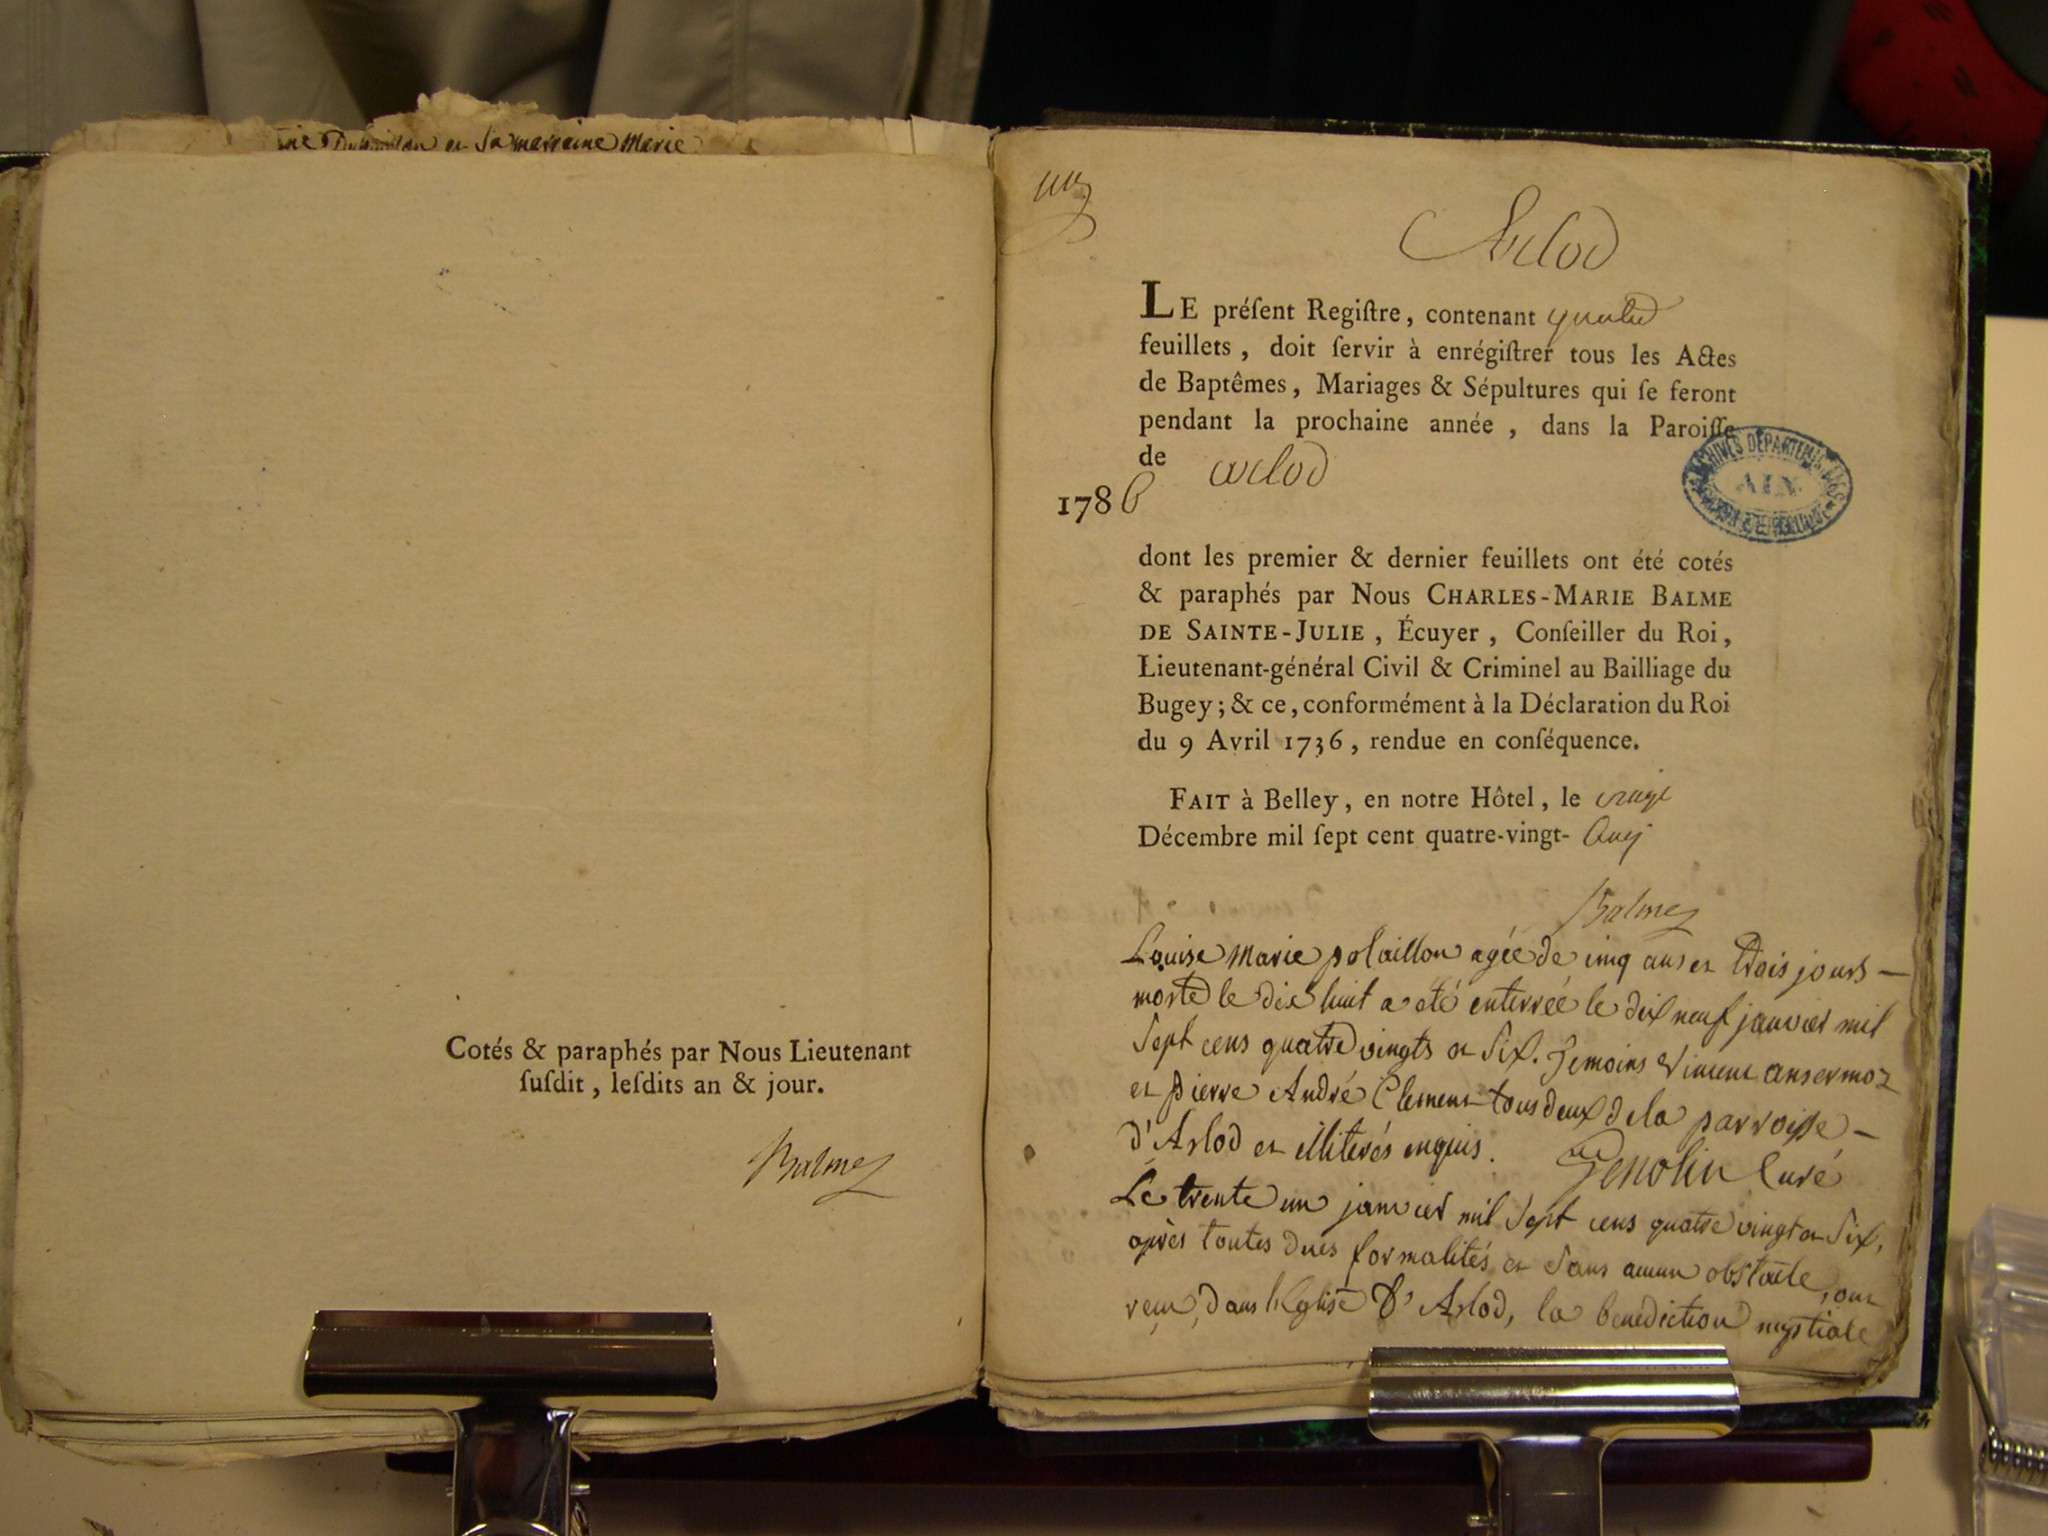 et Sa marraine Marie
Cotés & paraphés par Nous Lieutenant
ſuſdit, leſdits an & jour.
Balme
Arlod
LE préſent Regiſtre, contenant quatre
feuillets, doit ſervir à enrégiſtrer tous les Actes
de Baptêmes, Mariages & Sépultures qui ſe feront
pendant la prochaine année, dans la Paroiſſe
de arlod
1786
ARCHIVES DÉPARTEMENTALES
AIN
dont les premier & dernier feuillets ont été cotés
& paraphés par Nous CHARLES-MARIE BALME
DE SAINTE-JULIE, Écuyer, Conſeiller du Roi,
Lieutenant-général Civil & Criminel au Bailliage du
Bugey; & ce, conformément à la Déclaration du Roi
du 9 Avril 1736, rendue en conſéquence.
FAIT à Belley, en notre Hôtel, le
Décembre mil ſept cent quatre-vingt-
Balme
Louise Marie polaillon agée de cinq ans et trois jours —
morte le dix huit a été enterrée le dix neuf janvier mil
Sept cens quatre vingts et Six. Temoins Vincent ansermoz
et pierre André Clement tous deux de la parroisse —
d'Arlod et illiterés enquis. Genolin Curé
Le trente un janvier mil Sept cens quatre vingt et Six,
après toutes dues formalités et Sans aucun obstacle, ont
reçu, dans l'Eglise d'Arlod, la benediction nuptiale